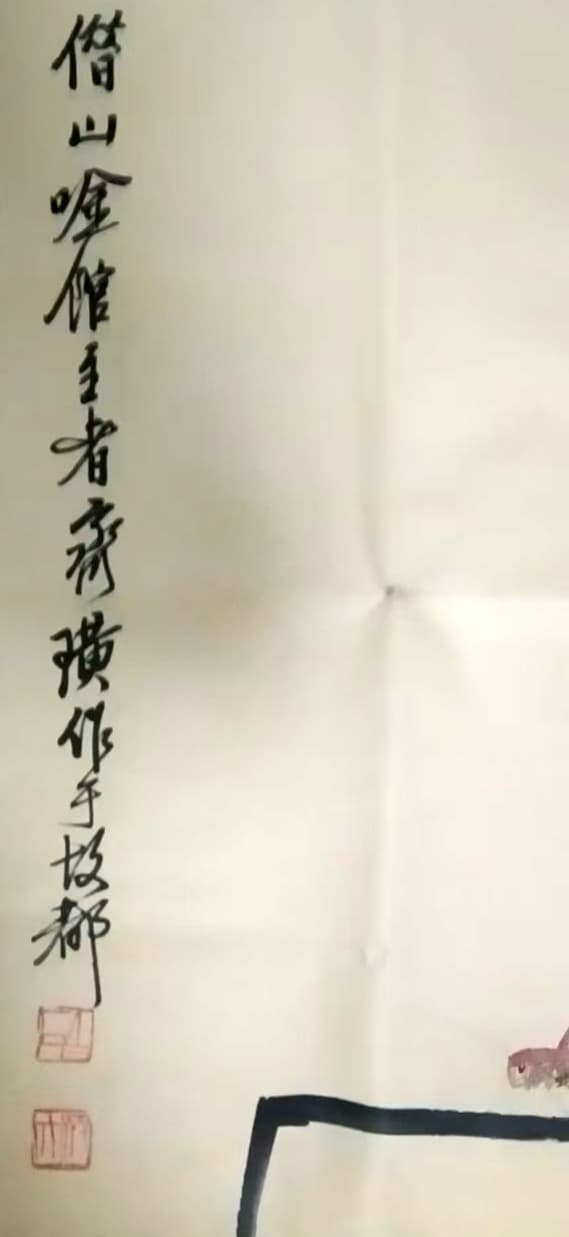 借山唫館主者齊璜作于故都